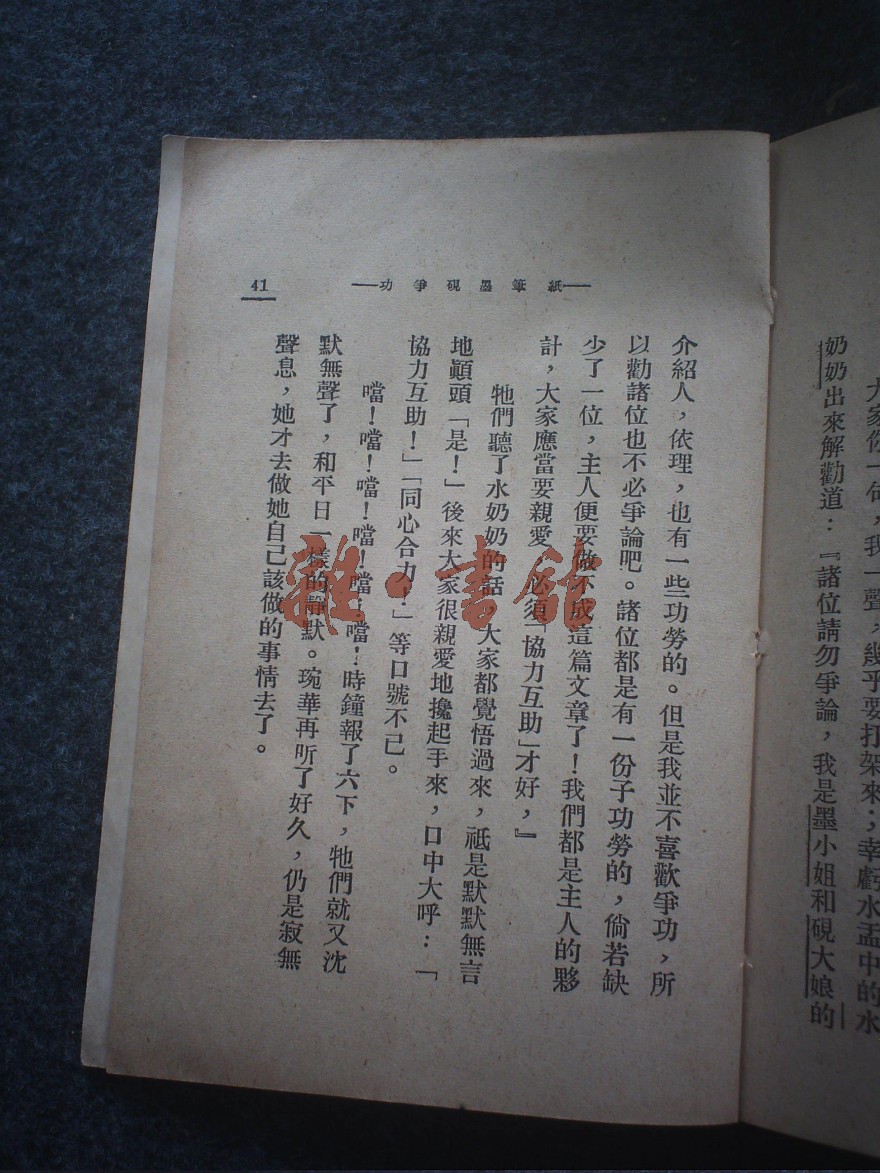 大家你一句，我一聲，幾乎要打架來；幸虧水盂中的水
奶奶出來解勸道：『諸位請勿爭論，我是墨小姐和硯大娘的
——紙筆墨硯爭功——
41
介紹人，依理，也有一些功勞的。但是我並不喜歡爭功，所
以勸諸位也不必爭論吧。諸位都是有一份子功勞的，倘若缺
少了一位，主人便要做不成這篇文章了！我們都是主人的夥
計，大家應當要親愛，必須「協力互助」才好，』
牠們聽了水奶奶的話，大家都覺悟過來，祗是默默無言
地顚頭「是！」後來大家很親愛地攙起手來，口中大呼：「
協力互助！」「同心合力！」等口號不已。
噹！噹！噹！噹！噹！噹！時鐘報了六下，牠們就又沈
默無聲了，和平日一樣的靜默。琬華再听了好久，仍是寂無
聲息，她才去做她自己該做的事情去了。
雜·書館